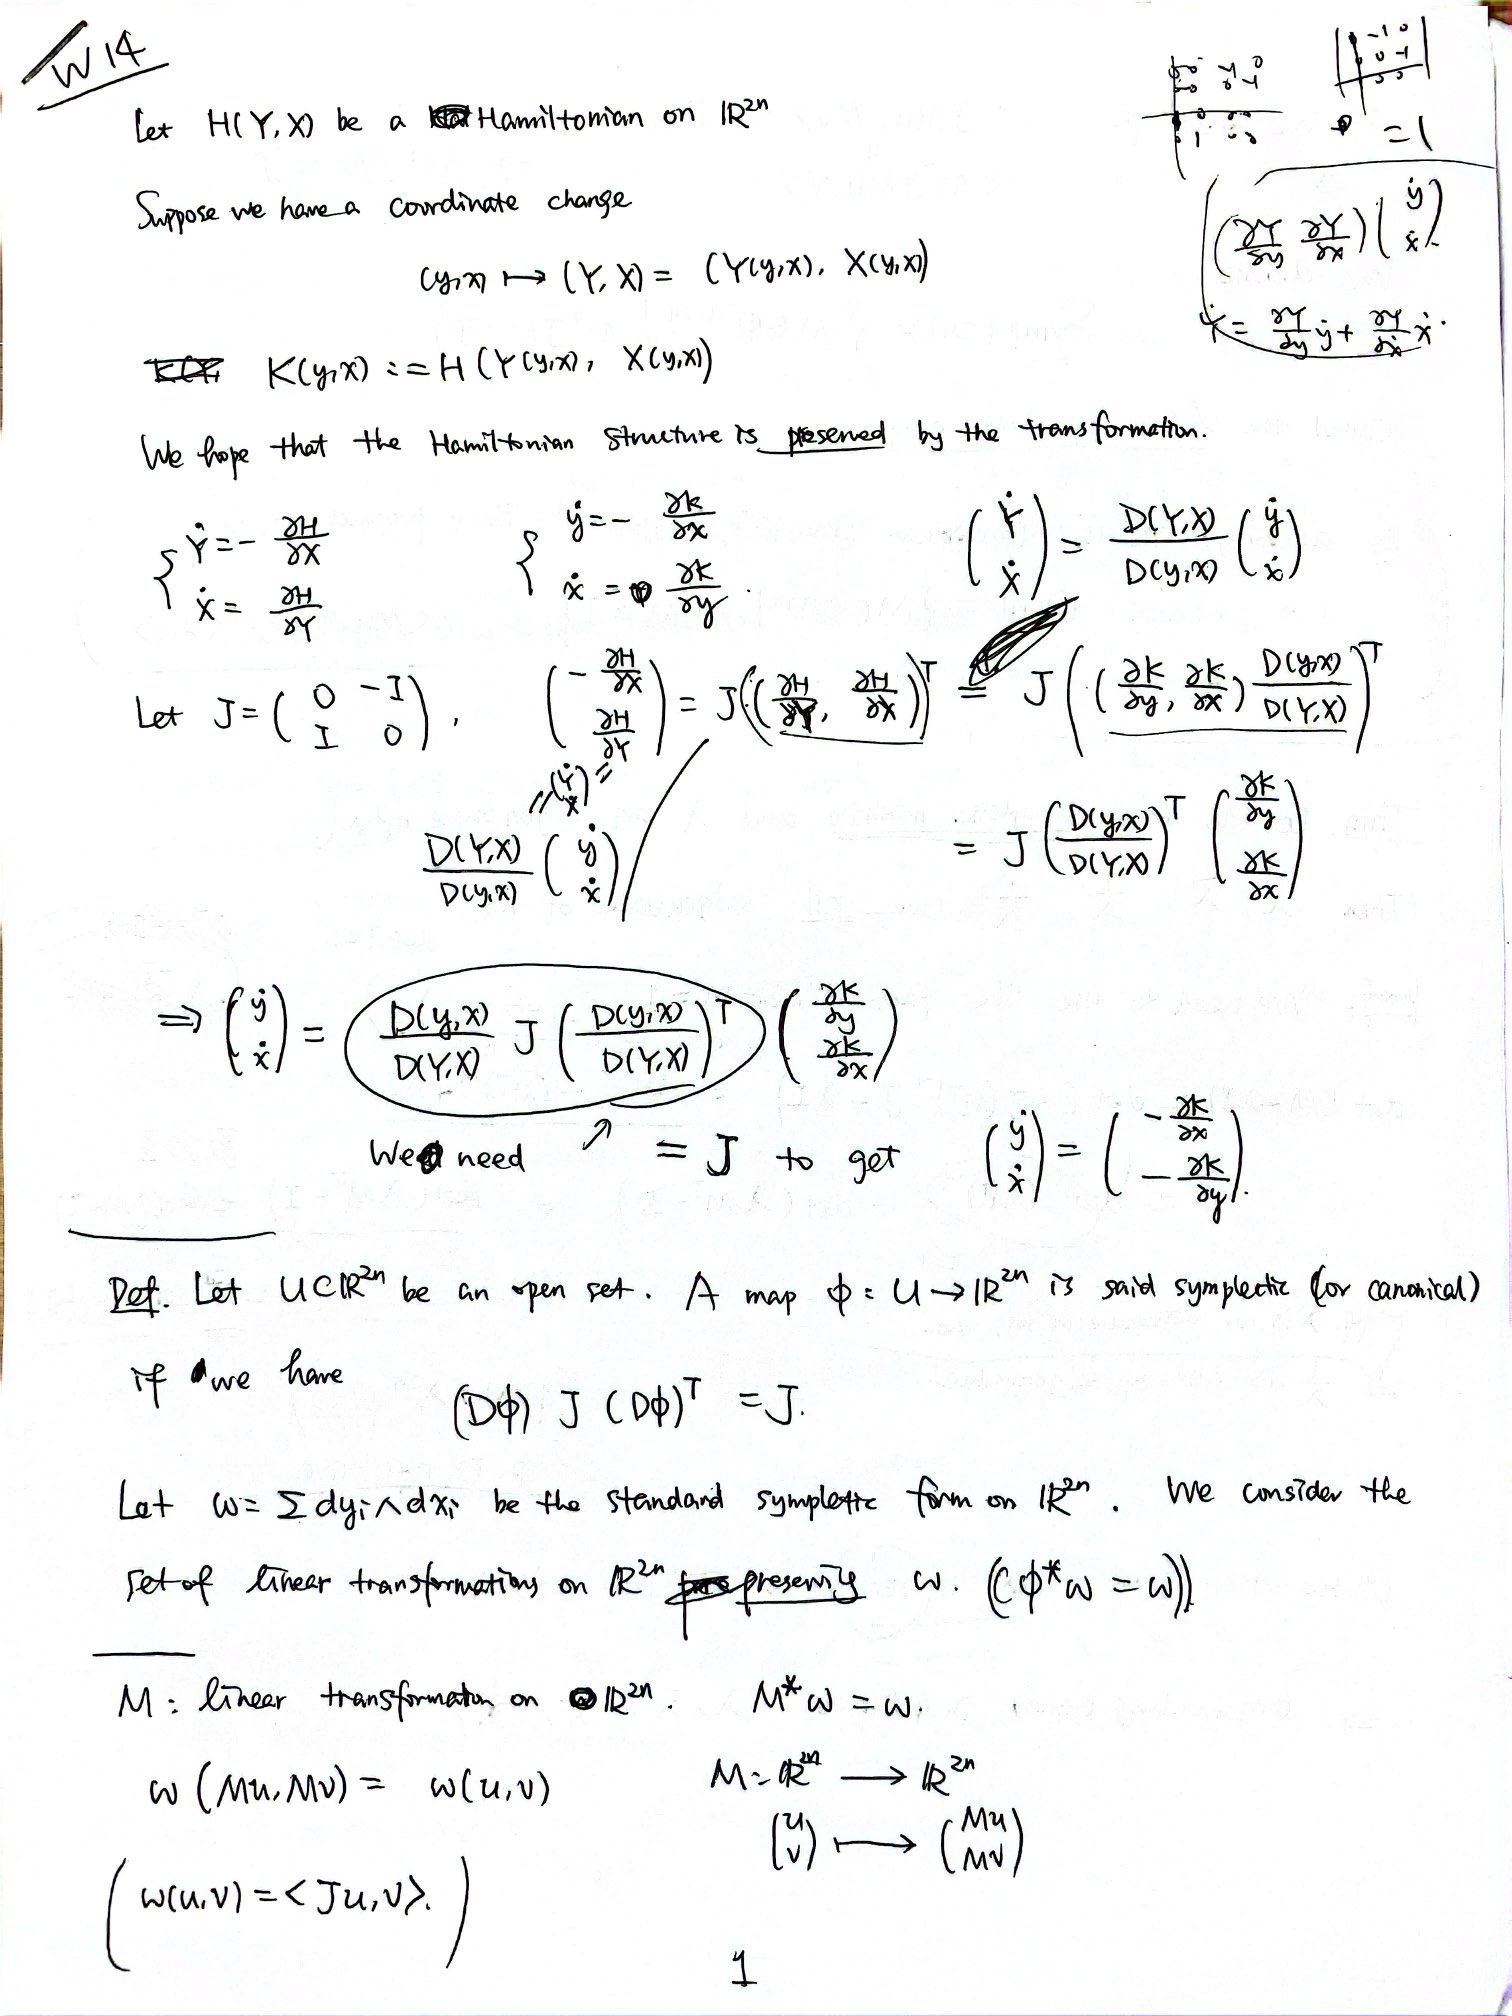 W14
Let H(Y,X) be a Hamiltonian on ℝ²ⁿ
= 1
Suppose we have a coordinate change
(∂Y/∂y ∂Y/∂x) (ẏ ẋ)
(y,x) ↦ (Y, X) = (Y(y,x), X(y,x))
Ẏ = ∂Y/∂y ẏ + ∂Y/∂x ẋ.
K(y,x) := H(Y(y,x), X(y,x))
We hope that the Hamiltonian structure is preserved by the transformation.
{ Ẏ = - ∂H/∂X    { ẏ = - ∂K/∂x    (Ẏ Ẋ) = D(Y,X)/D(y,x) (ẏ ẋ)
Ẋ = ∂H/∂Y    ẋ = ∂K/∂y.
Let J = (0 -I; I 0),    (-∂H/∂X; ∂H/∂Y) = J((∂H/∂Y, ∂H/∂X))ᵀ = J((∂K/∂y, ∂K/∂x) D(y,x)/D(Y,X))ᵀ
= (Ẏ Ẋ) =
D(Y,X)/D(y,x) (ẏ ẋ)    = J (D(y,x)/D(Y,X))ᵀ (∂K/∂y; ∂K/∂x)
⇒ (ẏ ẋ) = D(y,x)/D(Y,X) J (D(y,x)/D(Y,X))ᵀ (∂K/∂y; ∂K/∂x)
We need ↗ = J to get (ẏ ẋ) = (-∂K/∂x; -∂K/∂y).
Def. Let U⊂ℝ²ⁿ be an open set. A map ϕ: U → ℝ²ⁿ is said symplectic (or canonical)
if we have
(Dϕ) J (Dϕ)ᵀ = J.
Let ω = Σ dyᵢ∧dxᵢ be the standard symplectic form on ℝ²ⁿ. We consider the
set of linear transformations on ℝ²ⁿ preserving ω. ((ϕ*ω = ω))
M: linear transformation on ℝ²ⁿ. M*ω = ω.
ω(Mu, Mv) = ω(u,v)    M: ℝ²ⁿ → ℝ²ⁿ
(u v) ↦ (Mu Mv)
(ω(u,v) = <Ju,v>.)
1